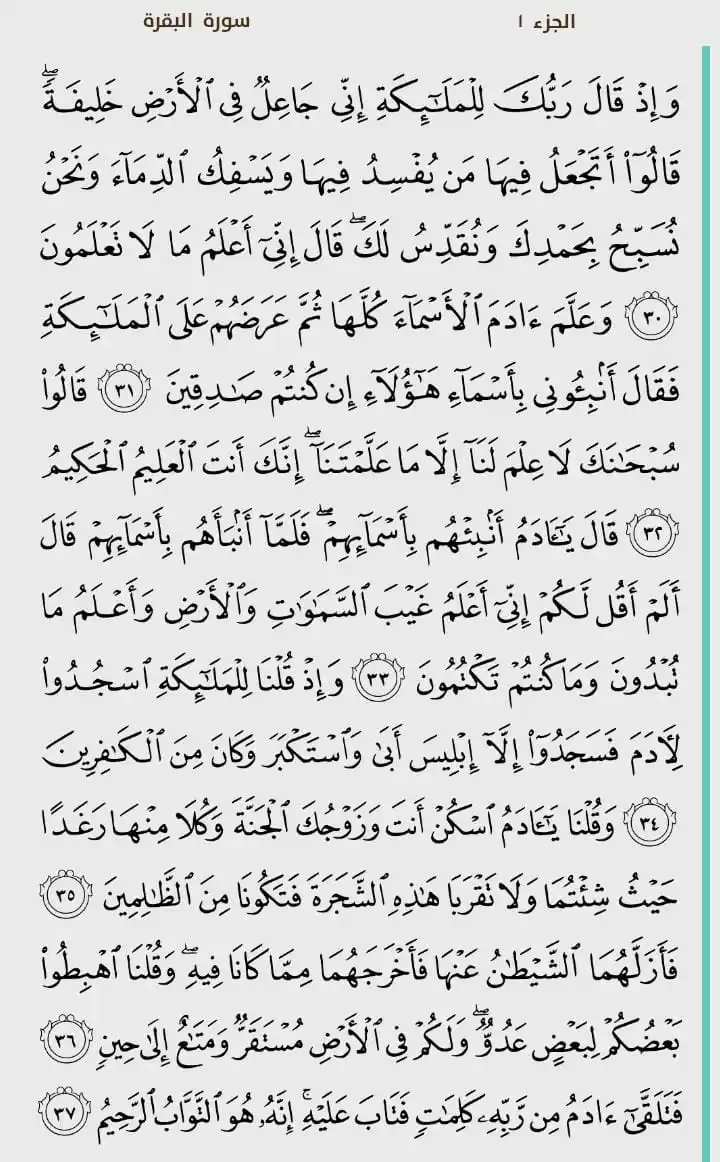 الجزء ١
سورة البقرة
وَإِذۡ قَالَ رَبُّكَ لِلۡمَلَٰٓئِكَةِ إِنِّي جَاعِلٞ فِي ٱلۡأَرۡضِ خَلِيفَةٗۖ
قَالُوٓاْ أَتَجۡعَلُ فِيهَا مَن يُفۡسِدُ فِيهَا وَيَسۡفِكُ ٱلدِّمَآءَ وَنَحۡنُ
نُسَبِّحُ بِحَمۡدِكَ وَنُقَدِّسُ لَكَۖ قَالَ إِنِّيٓ أَعۡلَمُ مَا لَا تَعۡلَمُونَ
٣٠ وَعَلَّمَ ءَادَمَ ٱلۡأَسۡمَآءَ كُلَّهَا ثُمَّ عَرَضَهُمۡ عَلَى ٱلۡمَلَٰٓئِكَةِ
فَقَالَ أَنۢبِـُٔونِي بِأَسۡمَآءِ هَٰٓؤُلَآءِ إِن كُنتُمۡ صَٰدِقِينَ ٣١ قَالُواْ
سُبۡحَٰنَكَ لَا عِلۡمَ لَنَآ إِلَّا مَا عَلَّمۡتَنَآۖ إِنَّكَ أَنتَ ٱلۡعَلِيمُ ٱلۡحَكِيمُ
٣٢ قَالَ يَٰٓـَٔادَمُ أَنۢبِئۡهُم بِأَسۡمَآئِهِمۡۖ فَلَمَّآ أَنۢبَأَهُم بِأَسۡمَآئِهِمۡ قَالَ
أَلَمۡ أَقُل لَّكُمۡ إِنِّيٓ أَعۡلَمُ غَيۡبَ ٱلسَّمَٰوَٰتِ وَٱلۡأَرۡضِ وَأَعۡلَمُ مَا
تُبۡدُونَ وَمَا كُنتُمۡ تَكۡتُمُونَ ٣٣ وَإِذۡ قُلۡنَا لِلۡمَلَٰٓئِكَةِ ٱسۡجُدُواْ
لِأٓدَمَ فَسَجَدُوٓاْ إِلَّآ إِبۡلِيسَ أَبَىٰ وَٱسۡتَكۡبَرَ وَكَانَ مِنَ ٱلۡكَٰفِرِينَ
٣٤ وَقُلۡنَا يَٰٓـَٔادَمُ ٱسۡكُنۡ أَنتَ وَزَوۡجُكَ ٱلۡجَنَّةَ وَكُلَا مِنۡهَا رَغَدًا
حَيۡثُ شِئۡتُمَا وَلَا تَقۡرَبَا هَٰذِهِ ٱلشَّجَرَةَ فَتَكُونَا مِنَ ٱلظَّٰلِمِينَ ٣٥
فَأَزَلَّهُمَا ٱلشَّيۡطَٰنُ عَنۡهَا فَأَخۡرَجَهُمَا مِمَّا كَانَا فِيهِۖ وَقُلۡنَا ٱهۡبِطُواْ
بَعۡضُكُمۡ لِبَعۡضٍ عَدُوّٞۖ وَلَكُمۡ فِي ٱلۡأَرۡضِ مُسۡتَقَرّٞ وَمَتَٰعٌ إِلَىٰ حِينٖ ٣٦
فَتَلَقَّىٰٓ ءَادَمُ مِن رَّبِّهِۦ كَلِمَٰتٖ فَتَابَ عَلَيۡهِۚ إِنَّهُۥ هُوَ ٱلتَّوَّابُ ٱلرَّحِيمُ ٣٧